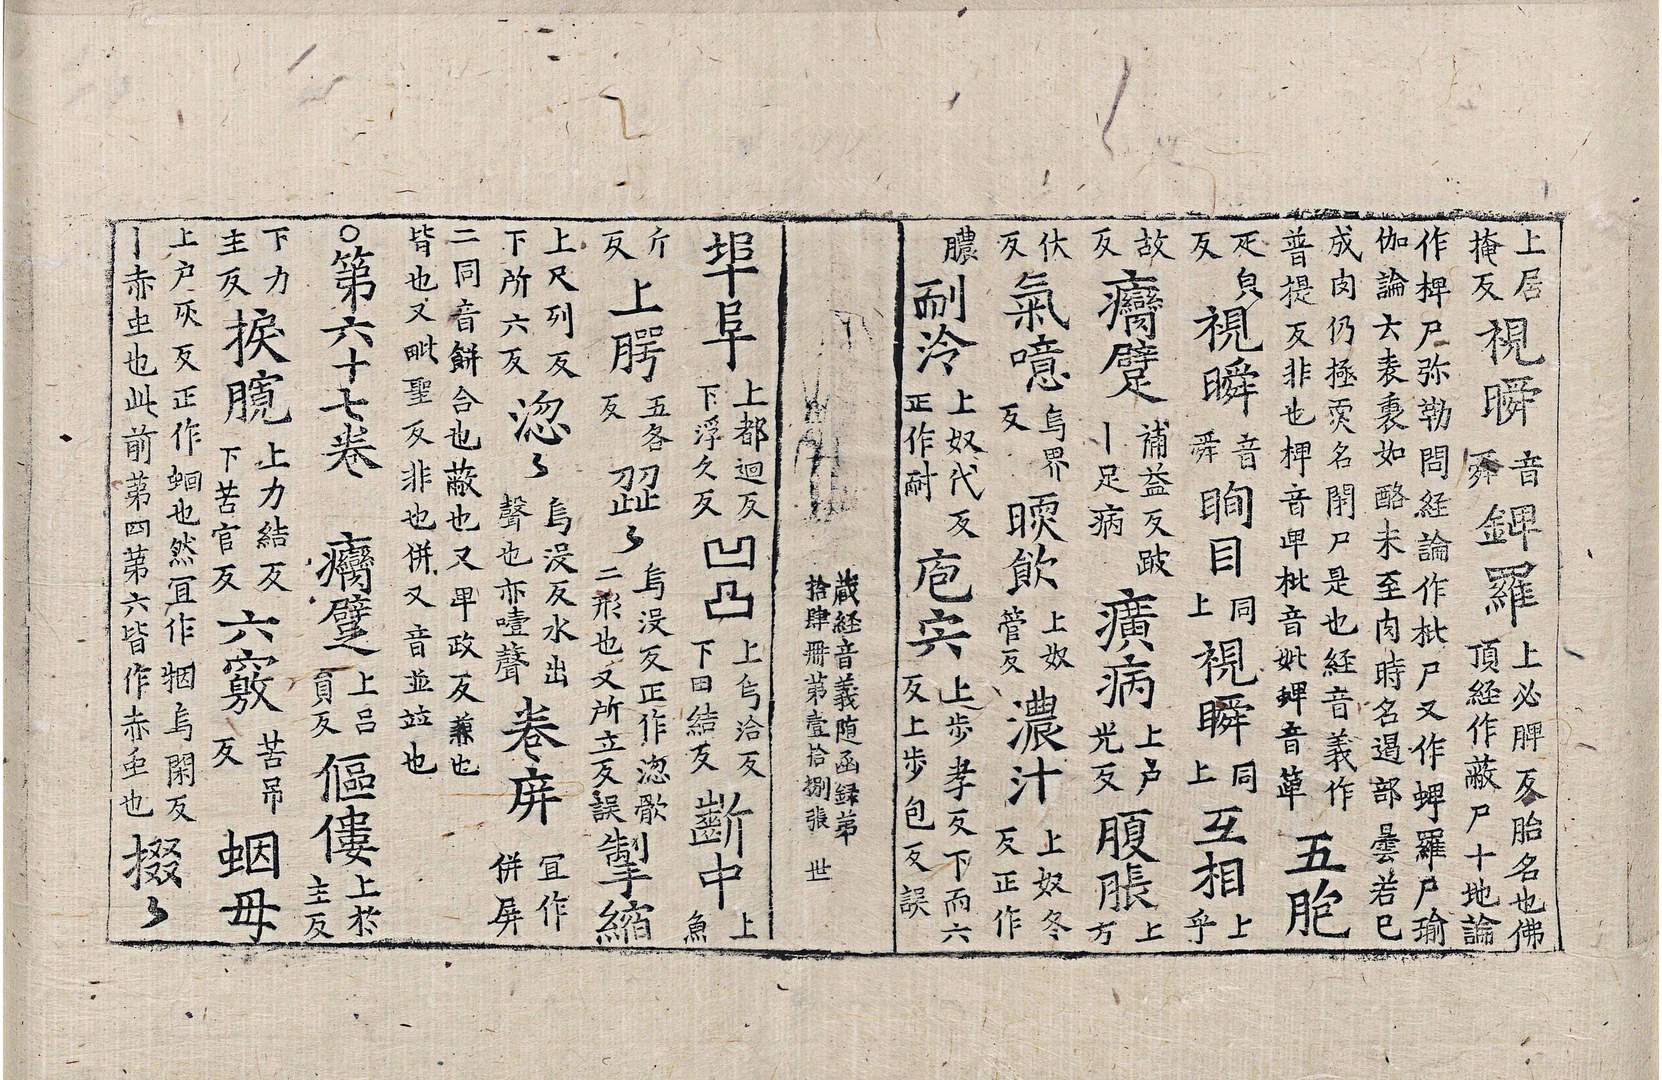 上居掩反視瞬音舜錍羅上必脾反胎名也佛頂経作蔽尸十地論
作椑尸弥勒問経論作枇尸又作蜱羅尸瑜伽論云表裏如酪未至肉時名遏部曇若已
成肉仍極耎名閉尸是也経音義作普提反非也椑音卑枇音妣錍音萆五胞
疋皃反視瞬音舜眴目同上視瞬同上互相上乎
故反癵躄補益反跛丨足病癀病上户光反腹脹上方
伏反氣噫烏界反㬉飲上奴管反濃汁上奴冬反正作
膿耐冷上奴代反正作耐庖穾上步孝反下而六反上步包反誤
蔵経音義随函録苐拾肆冊第壹拾捌張 世
埠阜上都迴反下浮久反凹凸上烏洽反下田結反齗中上魚
斤反上腭五各反歰〻烏没反正作淴㱀二形也又所立反誤掣縮
上尺列反下所六反淴〻烏没反水出聲也亦噎聲卷庰冝作併屏
二同音餅合也蔽也又畀政反兼也皆也又毗聖反非也併又音並竝也
○第六十七卷 癵躄上吕員反傴僂上於主反
下力主反捩臗上力結反下苦官反六竅苦吊反蛔母
上户灰反正作蛔也然冝作䄄烏閑反丨赤虫也此前苐四苐六皆作赤虫也掇〻